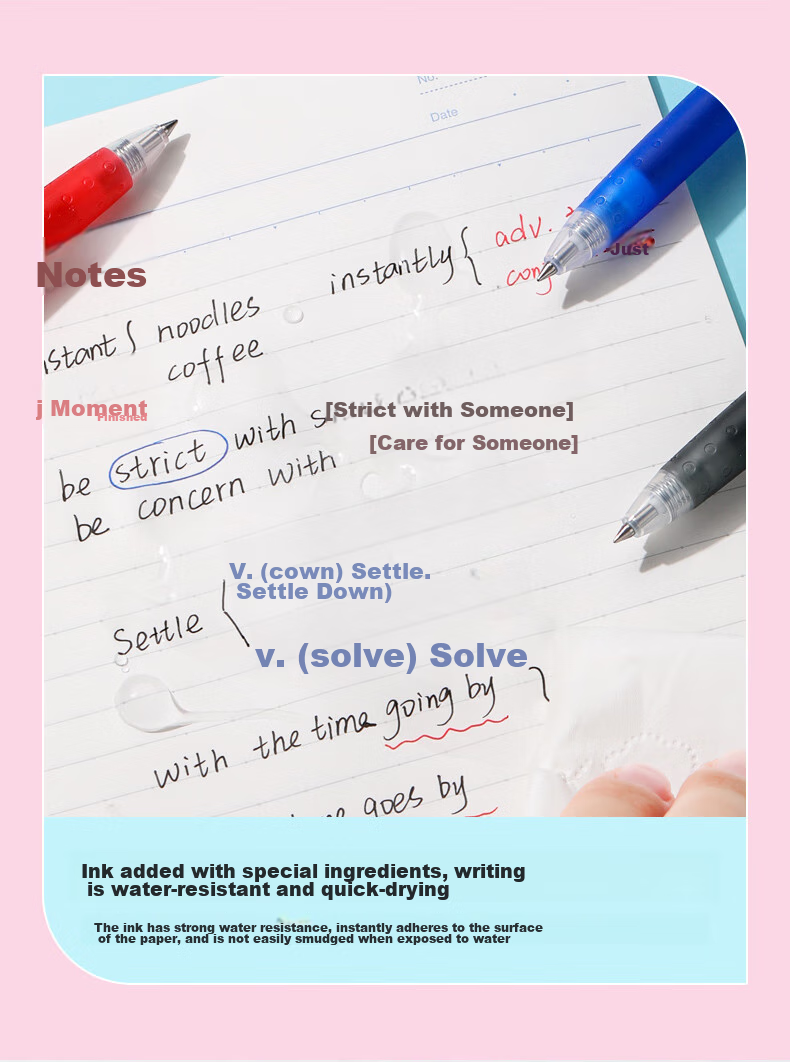 No.
Date
adv.
Just
instantly {
Notes
noodles
coffee
j Moment
Finished
[Strict with Someone]
be strict with
[Care for Someone]
be concern with
V. (cown) Settle.
Settle Down)
Settle
v. (solve) Solve
with the time going by
goes by
Ink added with special ingredients, writing
is water-resistant and quick-drying
The ink has strong water resistance, instantly adheres to the surface
of the paper, and is not easily smudged when exposed to water